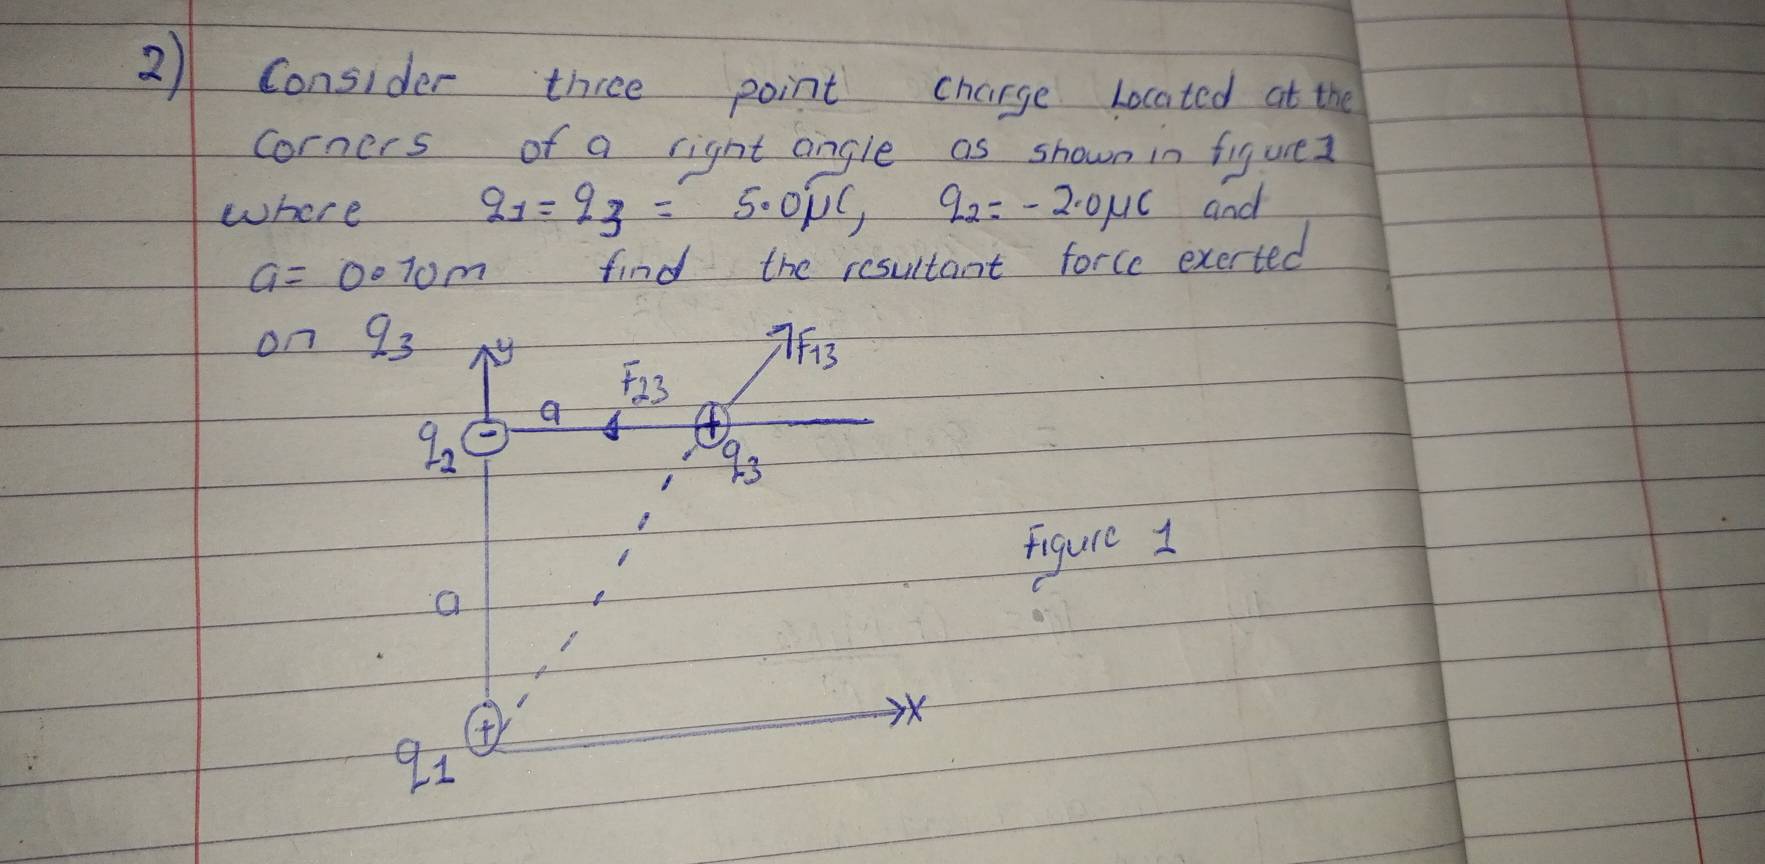 2) Consider three point charge Located at the
corners of a right angle as shown in figure 1
where q1 = q3 = 5.0μC, q2 = -2.0μC and
a = 0.10m find the resultant force exerted
on q3
y
F13
F23
a
q2 -
+
q3
Figure 1
a
x
+
q1